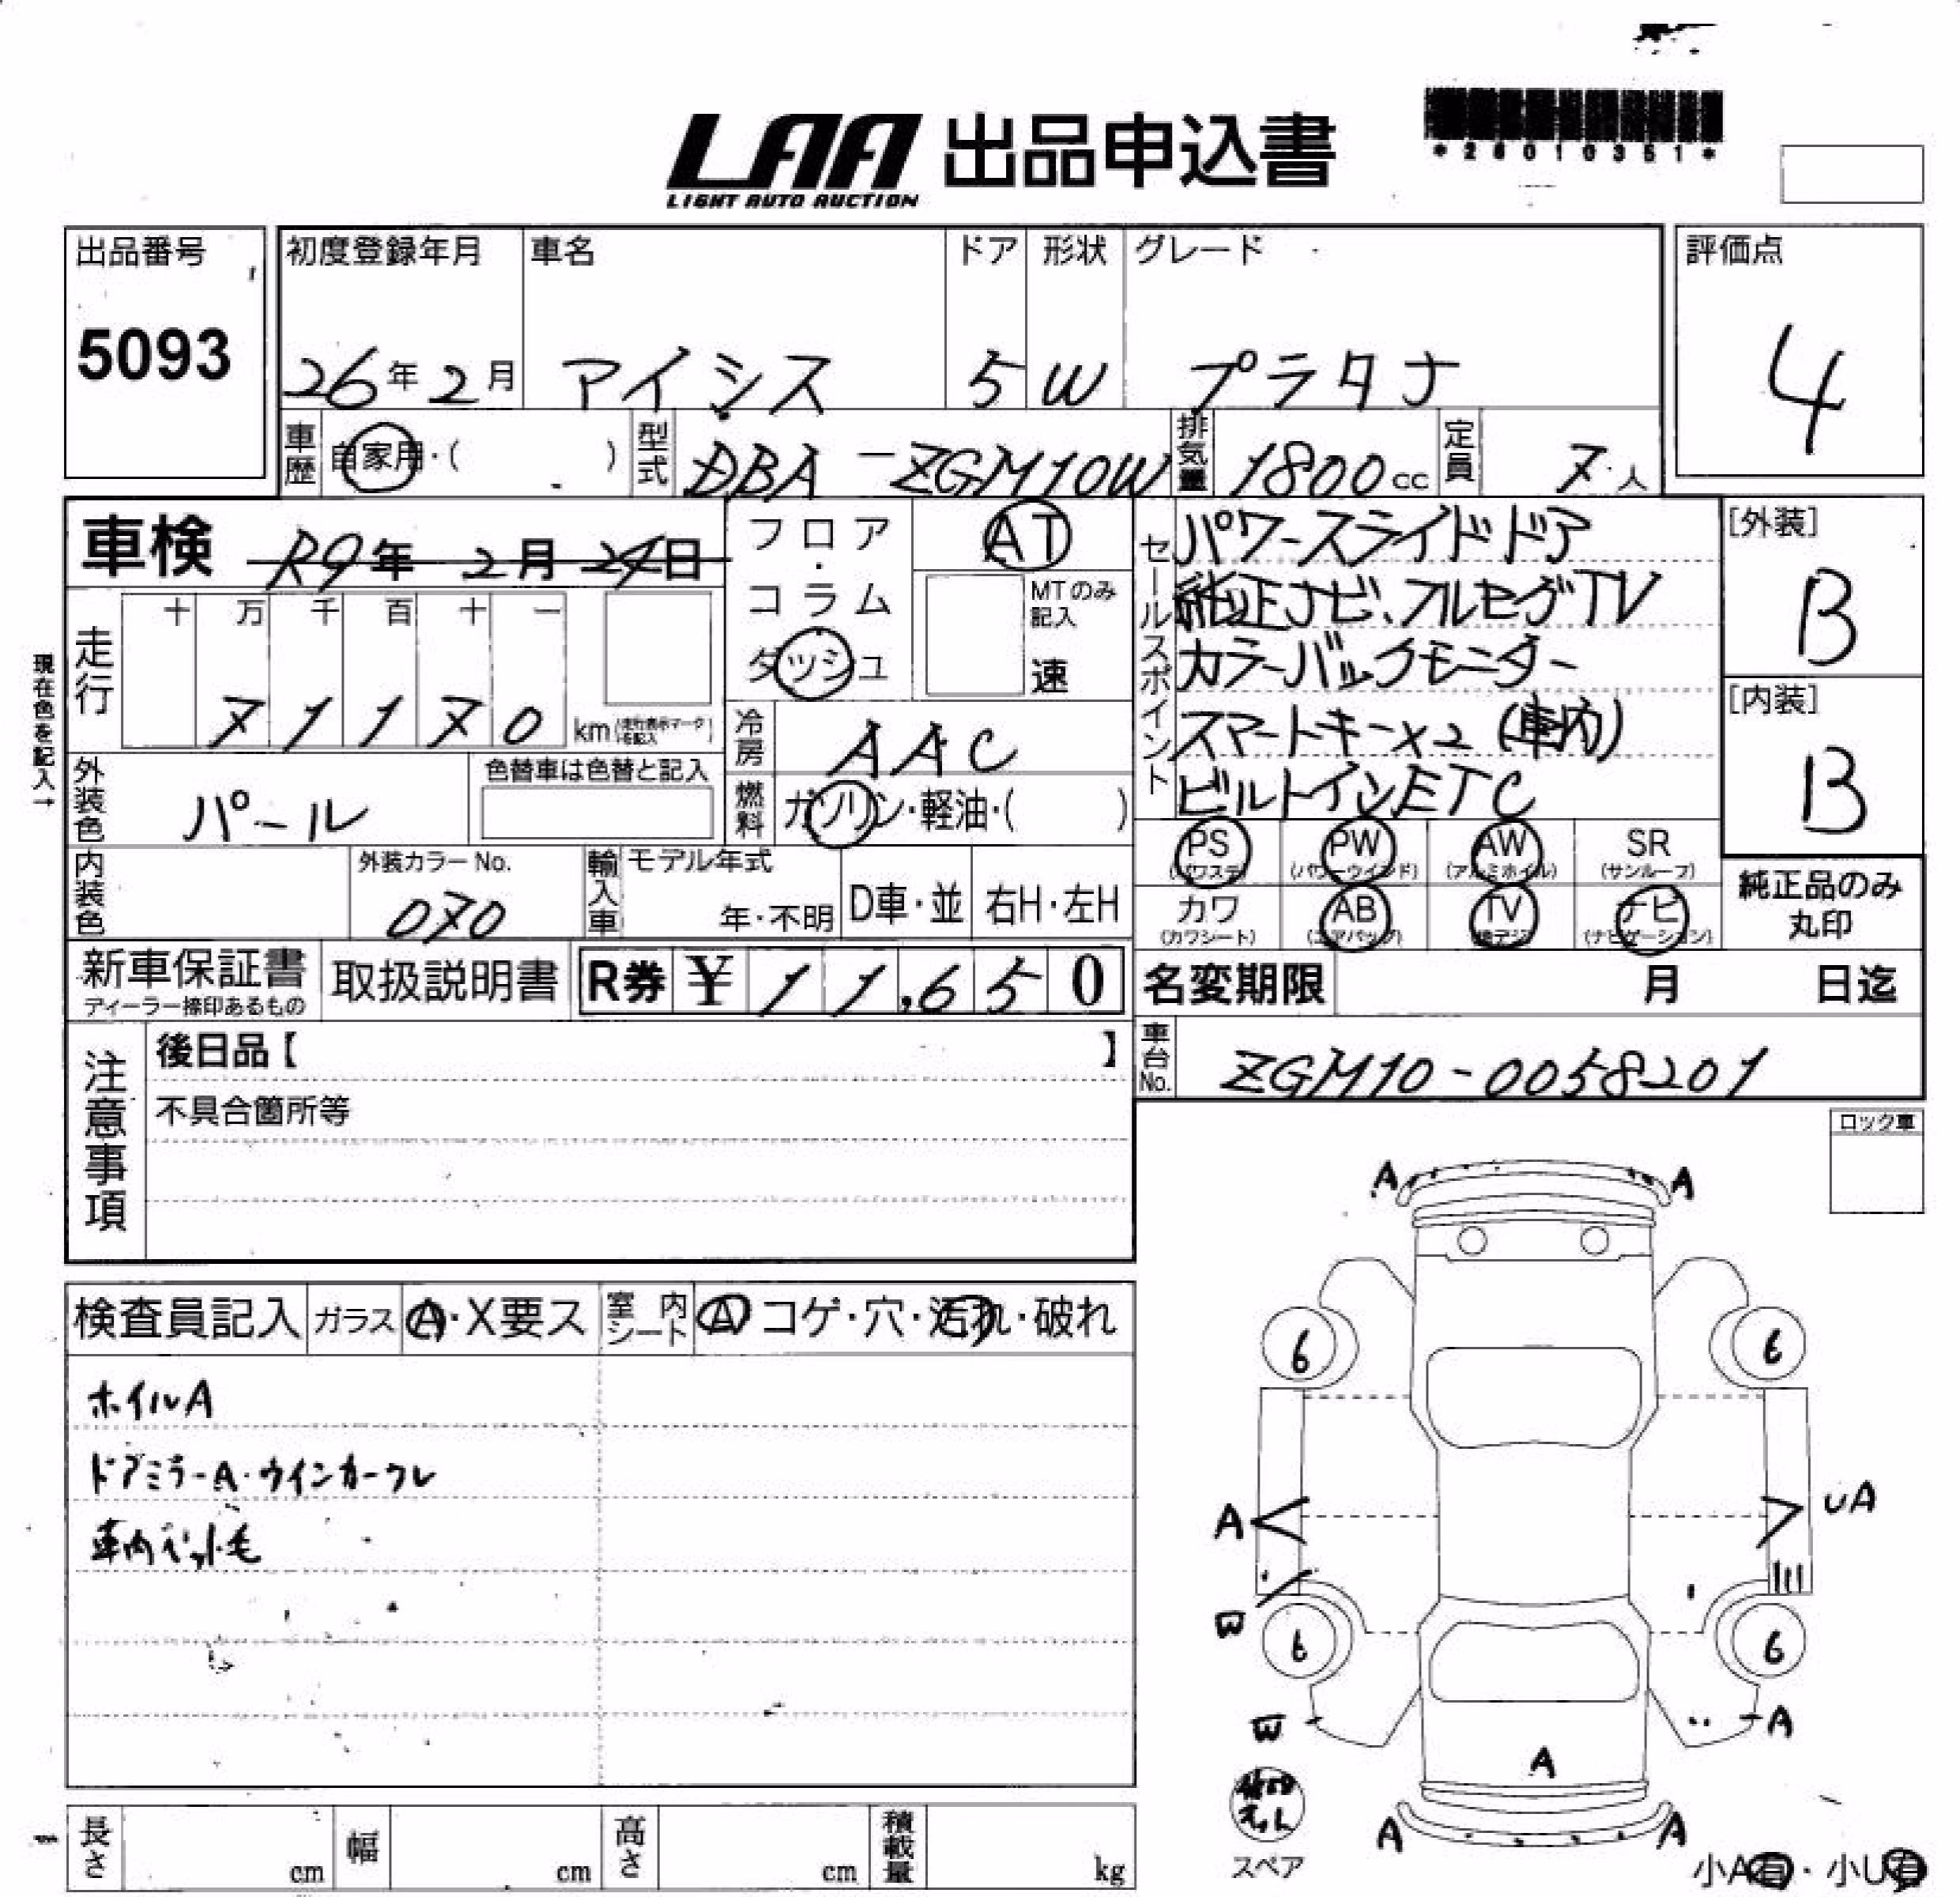 LAA 出品申込書
LIGHT AUTO AUCTION
*26010351*
出品番号
5093
初度登録年月
26年2月
車名
アイシス
ドア
5
形状
W
グレード
プラタナ
評価点
4
車歴
自家用・( )
型式
DBA-ZGM10W
排気量
1800cc
定員
7人
車検
R9年 2月 24日
フロア
・
コラム
ダッシュ
AT
MTのみ
記入
速
セールスポイント
パワースライドドア
純正ナビ、フルセグTV
カラーバックモニター
スマートキー×2 (車内)
ビルトインETC
[外装]
B
[内装]
B
現在色を記入→
走行
十 万 千 百 十 一
7 1 1 7 0 km
(走行表示マークを記入)
冷房
AAC
外装色
パール
色替車は色替と記入
燃料
ガソリン・軽油・( )
PS
(パワステ)
PW
(パワーウインド)
AW
(アルミホイル)
SR
(サンルーフ)
カワ
(カワシート)
AB
(エアバッグ)
TV
(地デジ)
ナビ
(ナビゲーション)
純正品のみ
丸印
内装色
外装カラーNo.
070
輸入車
モデル年式
年・不明
D車・並
右H・左H
新車保証書
ディーラー捺印あるもの
取扱説明書
R券 ¥11,650
名変期限 月 日迄
注意事項
後日品【 】
不具合箇所等
車台No.
ZGM10-0058201
ロック車
検査員記入
ガラス
A・X要ス
室内シート
A コゲ・穴・汚れ・破れ
ホイルA
ドアミラーA・ウインカーワレ
車内ペット毛
A A
6 6
A UA
W
6 6
W A
A
A A
スペア
小A有・小U有
長さ cm
幅 cm
高さ cm
積載量 kg